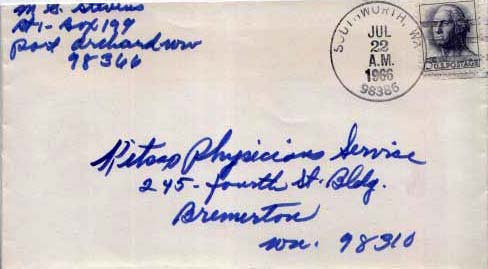 M E Stevens
Rt 1 - Box 199
Port Orchard Wn
98366
SOUTHWORTH, WA
JUL
22
A.M.
1966
98386
U.S. POSTAGE
Kitsap Physicians Service
245 - Fourth St. Bldg.
Bremerton
Wn. 98310